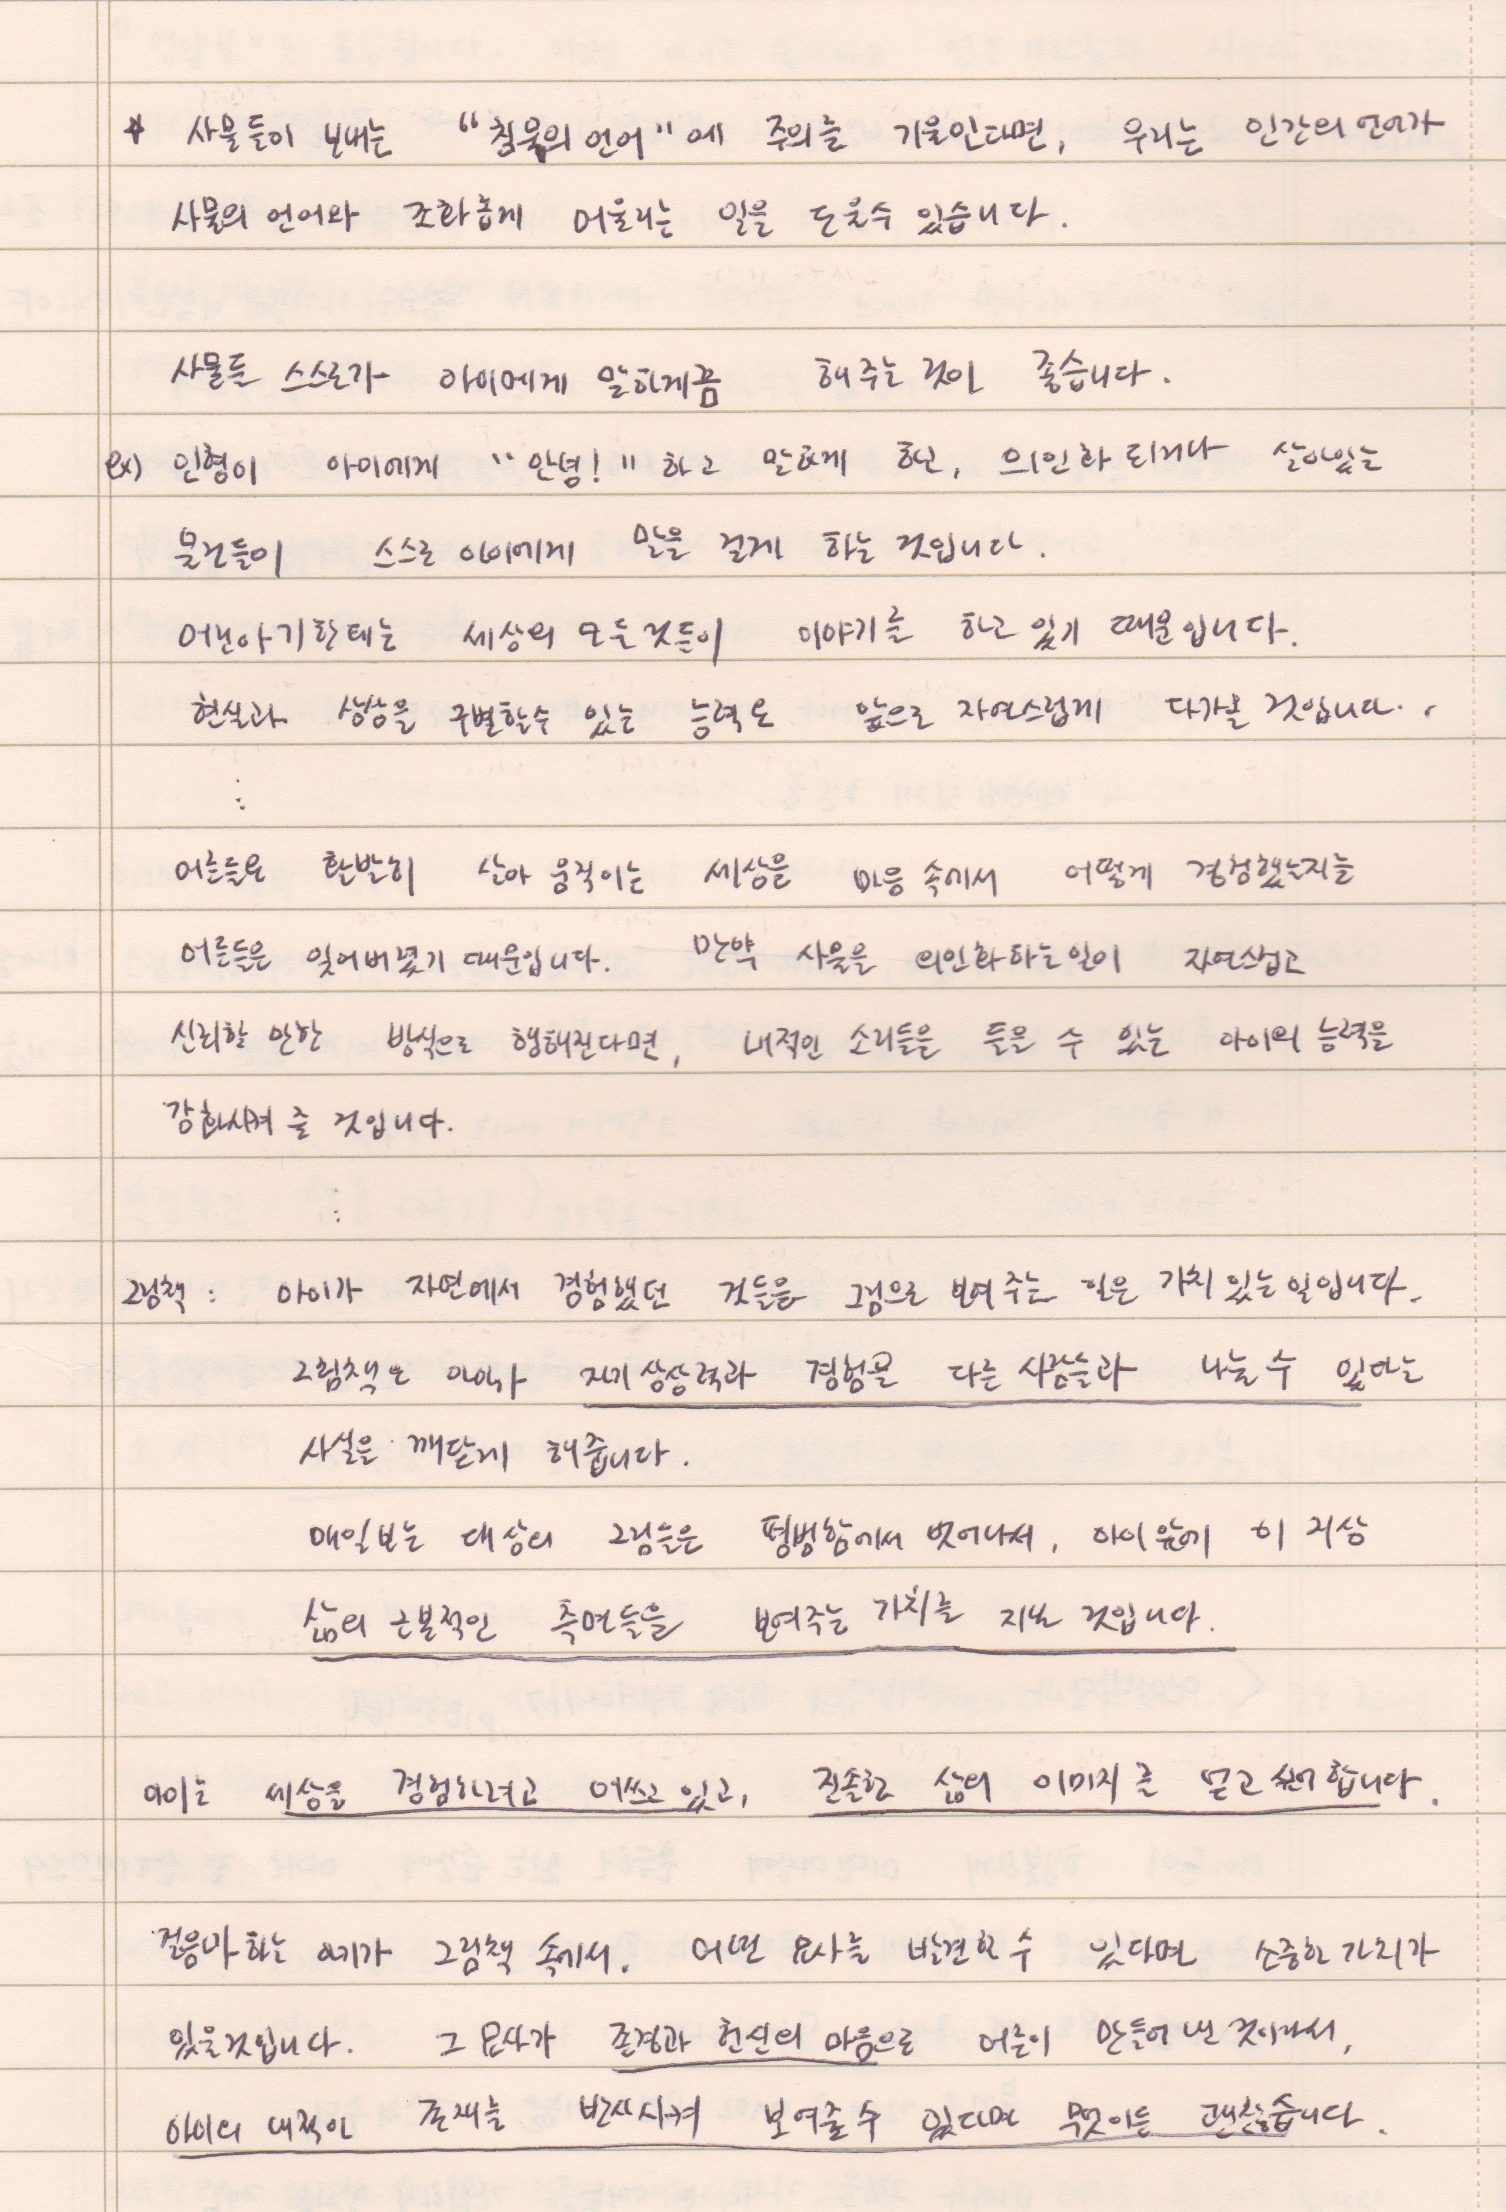 * 사물들이 보내는 "침묵의 언어"에 주의를 기울인다면, 우리는 인간의 언어가
사물의 언어와 조화롭게 어울리는 일을 도울수 있습니다.
사물들 스스로가 아이에게 말하게끔 해주는 것이 좋습니다.
ex) 인형이 아이에게 "안녕!" 하고 말하게 하고, 의인화 되거나 살아있는
물건들이 스스로 아이에게 말을 걸게 하는 것입니다.
어린아기한테는 세상의 모든것들이 이야기를 하고 있기 때문입니다.
현실과 상상을 구별할수 있는 능력은 앞으로 자연스럽게 다가올 것입니다.
:
어른들은 활발히 살아 움직이는 세상을 마음 속에서 어떻게 경험했는지를
어른들은 잊어버렸기 때문입니다. 만약 사물을 의인화하는일이 자연스럽고
신뢰할 만한 방식으로 행해진다면, 내적인 소리들을 들을 수 있는 아이의 능력을
강화시켜 줄 것입니다.
:
그림책 : 아이가 자연에서 경험했던 것들을 그림으로 보여주는 일은 가치있는일입니다.
그림책은 아이가 자기상상력과 경험을 다른 사람들과 나눌 수 있다는
사실을 깨닫게 해줍니다.
매일보는 대상의 그림들은 평범함에서 벗어나서, 아이 앞에 이 지상
삶의 근본적인 측면들을 보여주는 가치를 지닐 것입니다.
아이는 세상을 경험하려고 애쓰고 있고, 진솔한 삶의 이미지를 얻고 싶어합니다.
걸음마하는 아기가 그림책 속에서, 어떤 묘사를 발견할 수 있다면 소중한 가치가
있을것입니다. 그 묘사가 존경과 헌신의 마음으로 어른이 만들어 낸 것이라서,
아이의 내적인 존재를 반사시켜 보여줄 수 있다면 무엇이든 괜찮습니다.